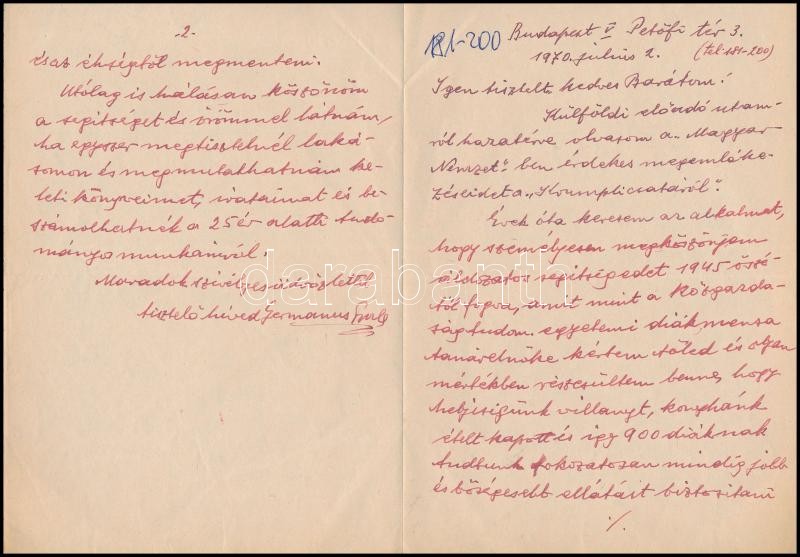 181-200 Budapest V Petőfi tér 3.
1970. július 2. (Tel: 181-200)
Igen tisztelt, kedves Barátom!
Külföldi előadó utam-
ról hazatérve olvasom a „Magyar
Nemzet"-ben érdekes megemléke-
zéseidet a „Krumplicsatáról".
Évek óta keresem az alkalmat,
hogy személyesen megköszönjem
áldozatos segítségedet 1945 őszé-
től fogva, amit mint a Közgazda-
ságtudom. egyetemi diákmensa
tanárelnöke kértem tőled és olyan
mértékben részesültem benne, hogy
helyiségünk villanyt, konyhánk
ételt kapott és így 900 diáknak
tudtunk fokozatosan mindig jobb
és bőségesebb ellátást biztosítani
./.
-2-
és az éhségtől megmenteni.
Utólag is hálásan köszönöm
a segítséget és örömmel látnám,
ha egyszer megtisztelnél laká-
somon és megmutathatnám ke-
leti könyveimet, irataimat és be-
számolhatnék a 25 év alatti tudo-
mányos munkáimról.
Maradok szívélyes üdvözlettel
tisztelő híved Germanus Gyula
darabanth